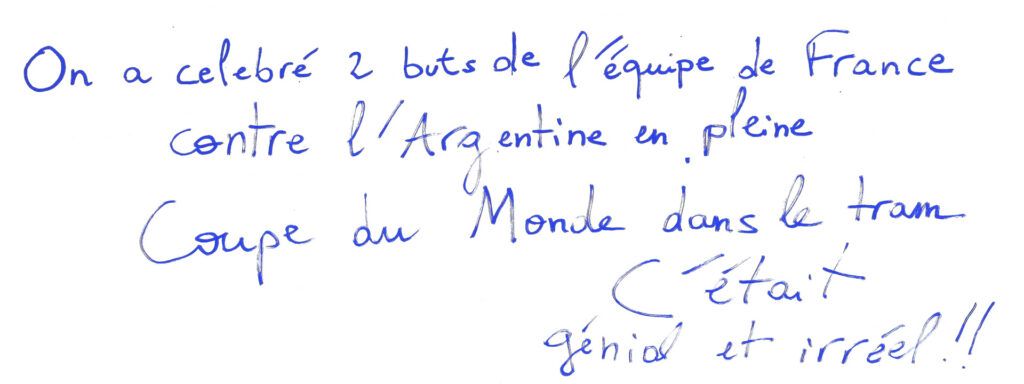 On a celebré 2 buts de l'équipe de France
contre l'Argentine en pleine
Coupe du Monde dans le tram
C'était
génial et irréel!!